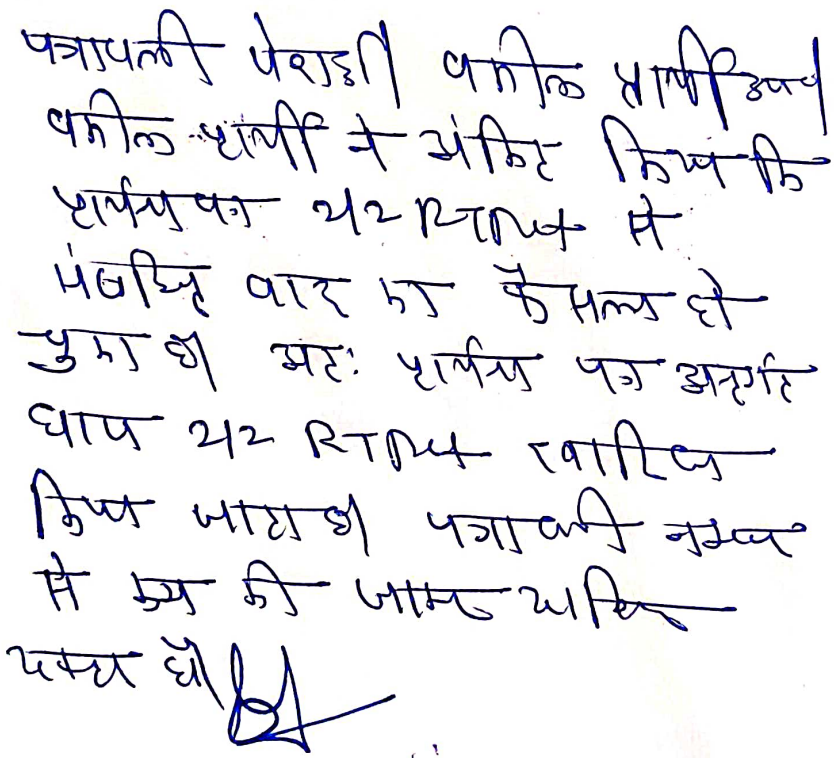 पत्रावली पेश हुई। वकील प्रार्थी उप०
वकील प्रार्थी ने अंकित किया कि
प्रार्थना पत्र 212 RTAct से
संबंधित वाद का फैसला हो
चुका है। अतः प्रार्थना पत्र अन्तर्गत
धारा 212 RTAct खारिज
किया जाता है। पत्रावली नम्बर
से कम की जाकर दाखिल
दफ्तर हो।